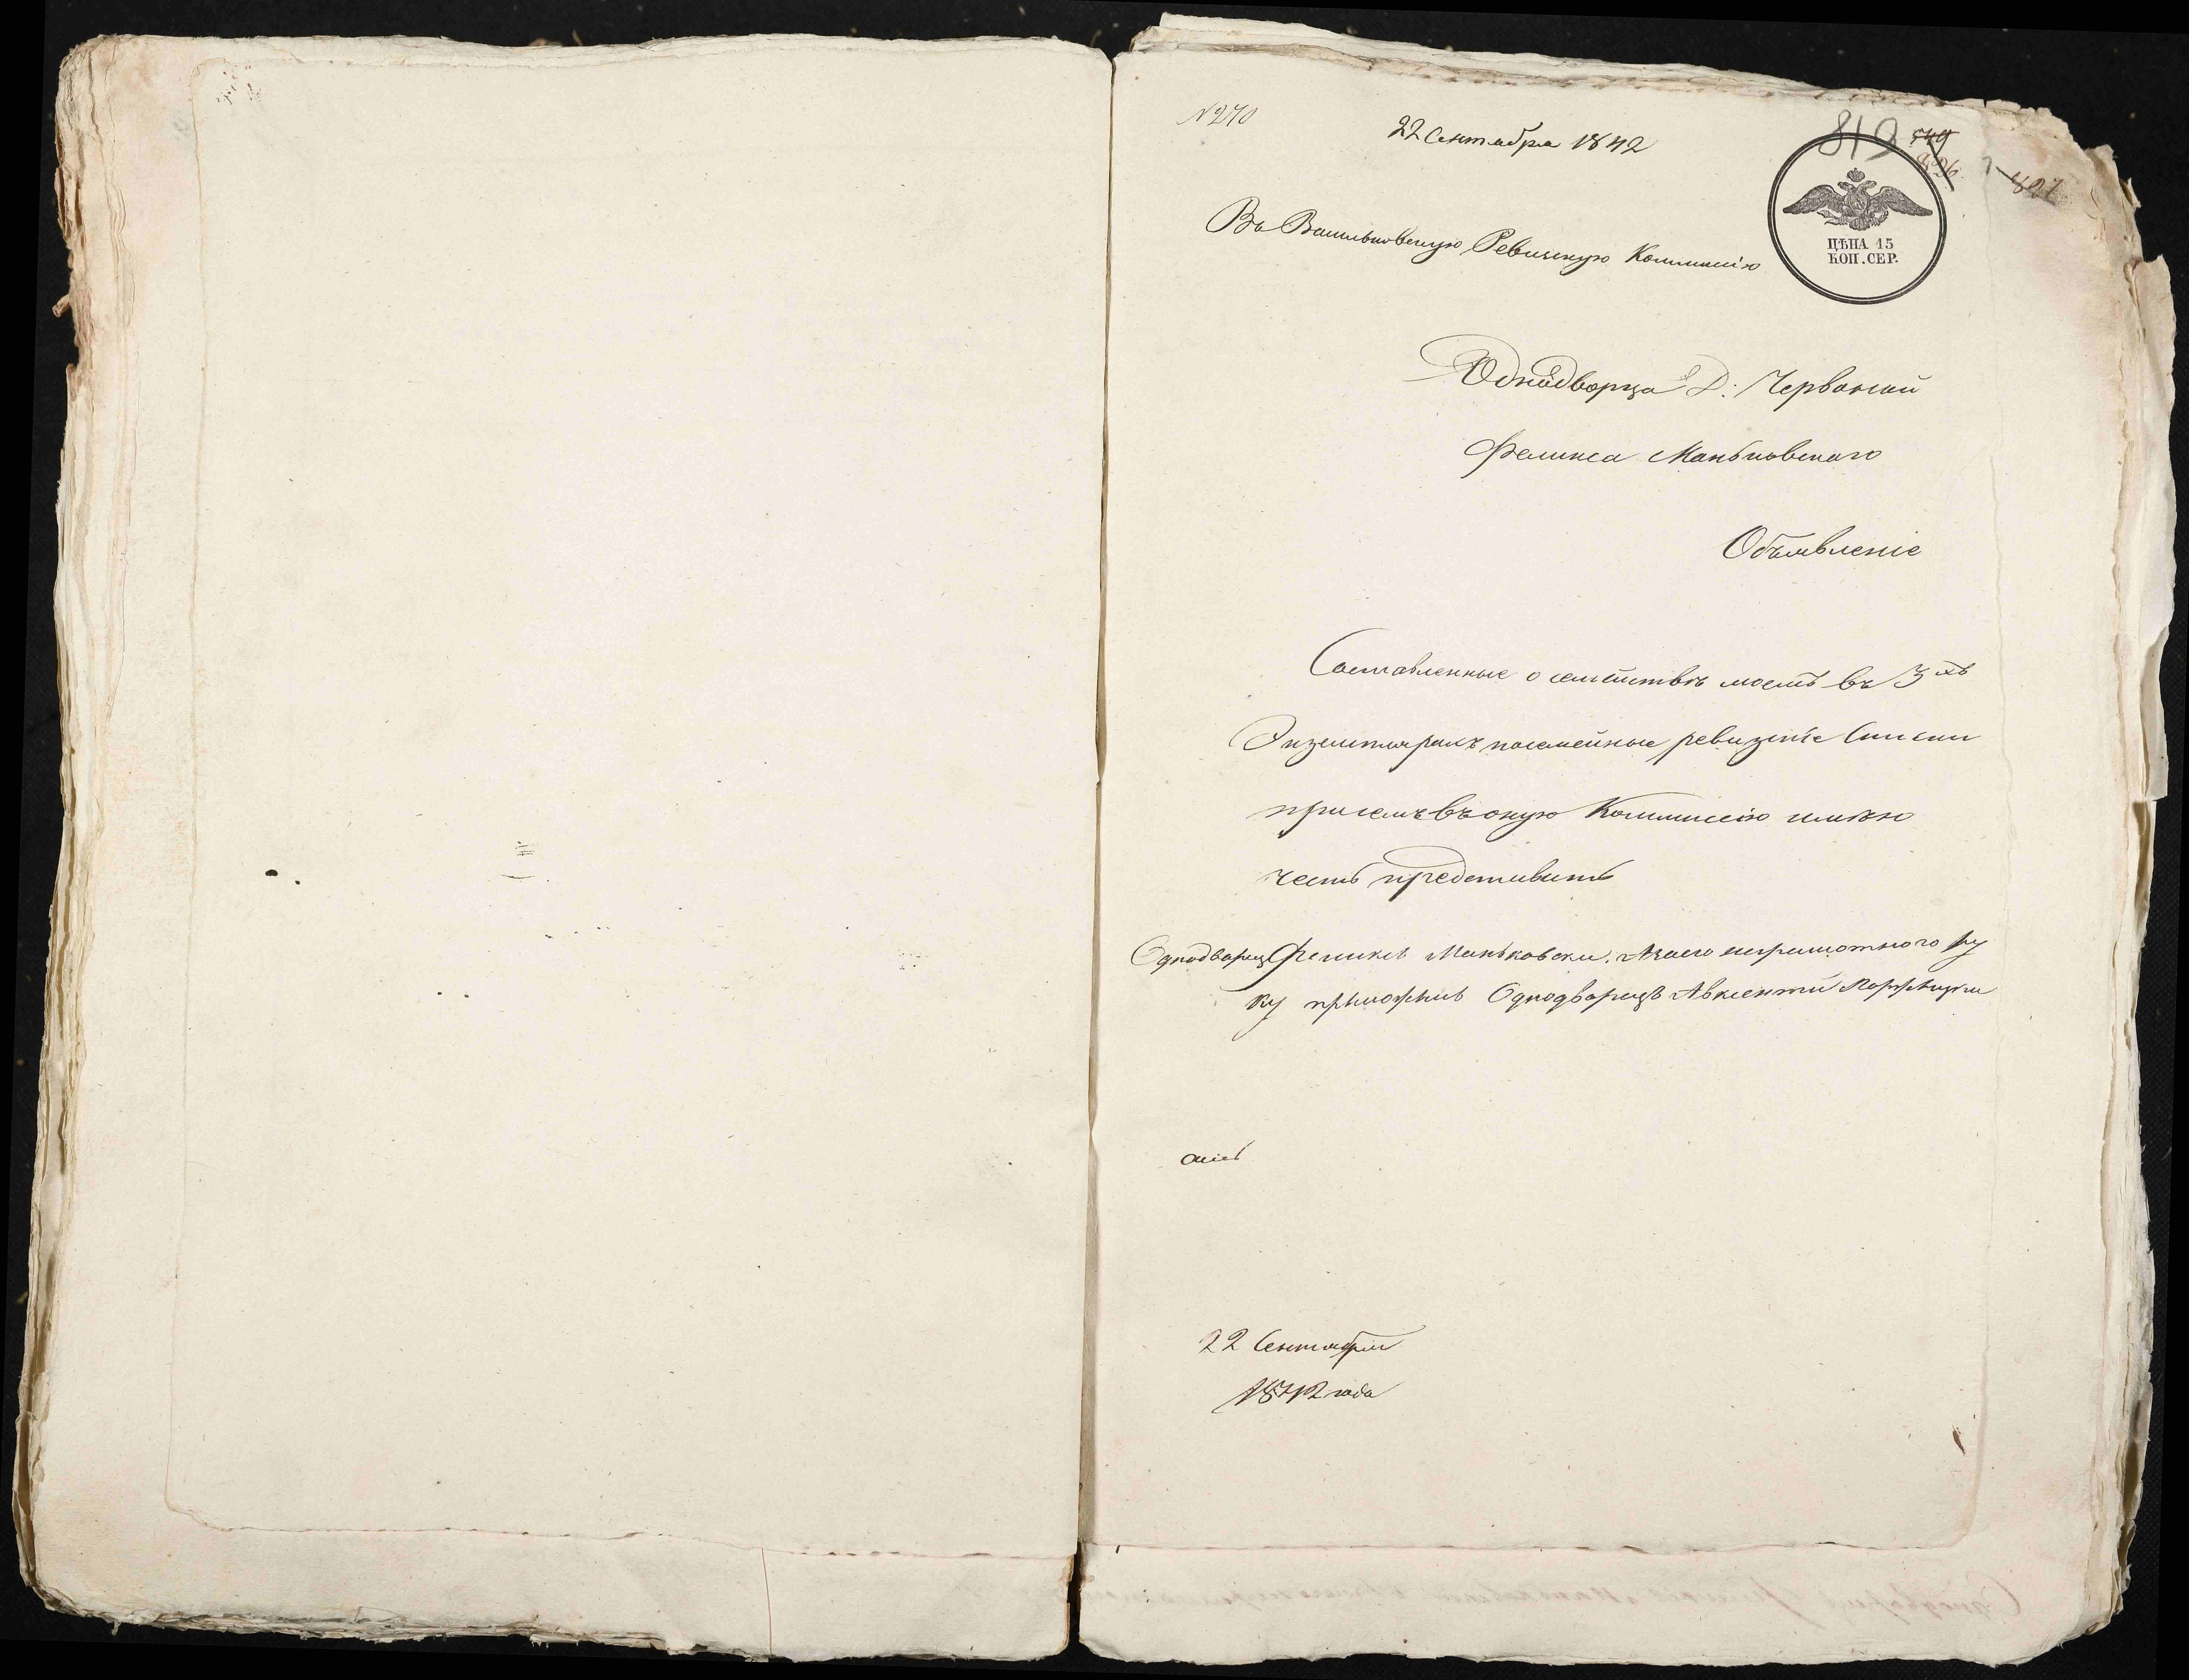 №270
22 Сентабра 1842
819 549
826
827
Въ Васильковскую Ревизскую Коммисію
ЦѢНА 15
КОП. СЕР.
Однодворца Д: Червонсай
Феликса Маньковскаго
Объявленіе
Составленные о семействѣ моемъ въ 3хъ
Экземплярахъ посемейные ревизскіе Списки
присемъ въ оную Коммисію имѣю
честь представить
Однодворец Феликсъ Маньковски. А заего неграмотного ру
ку приложилъ Однодворецъ Авксентий
22 Сентября
1842 года